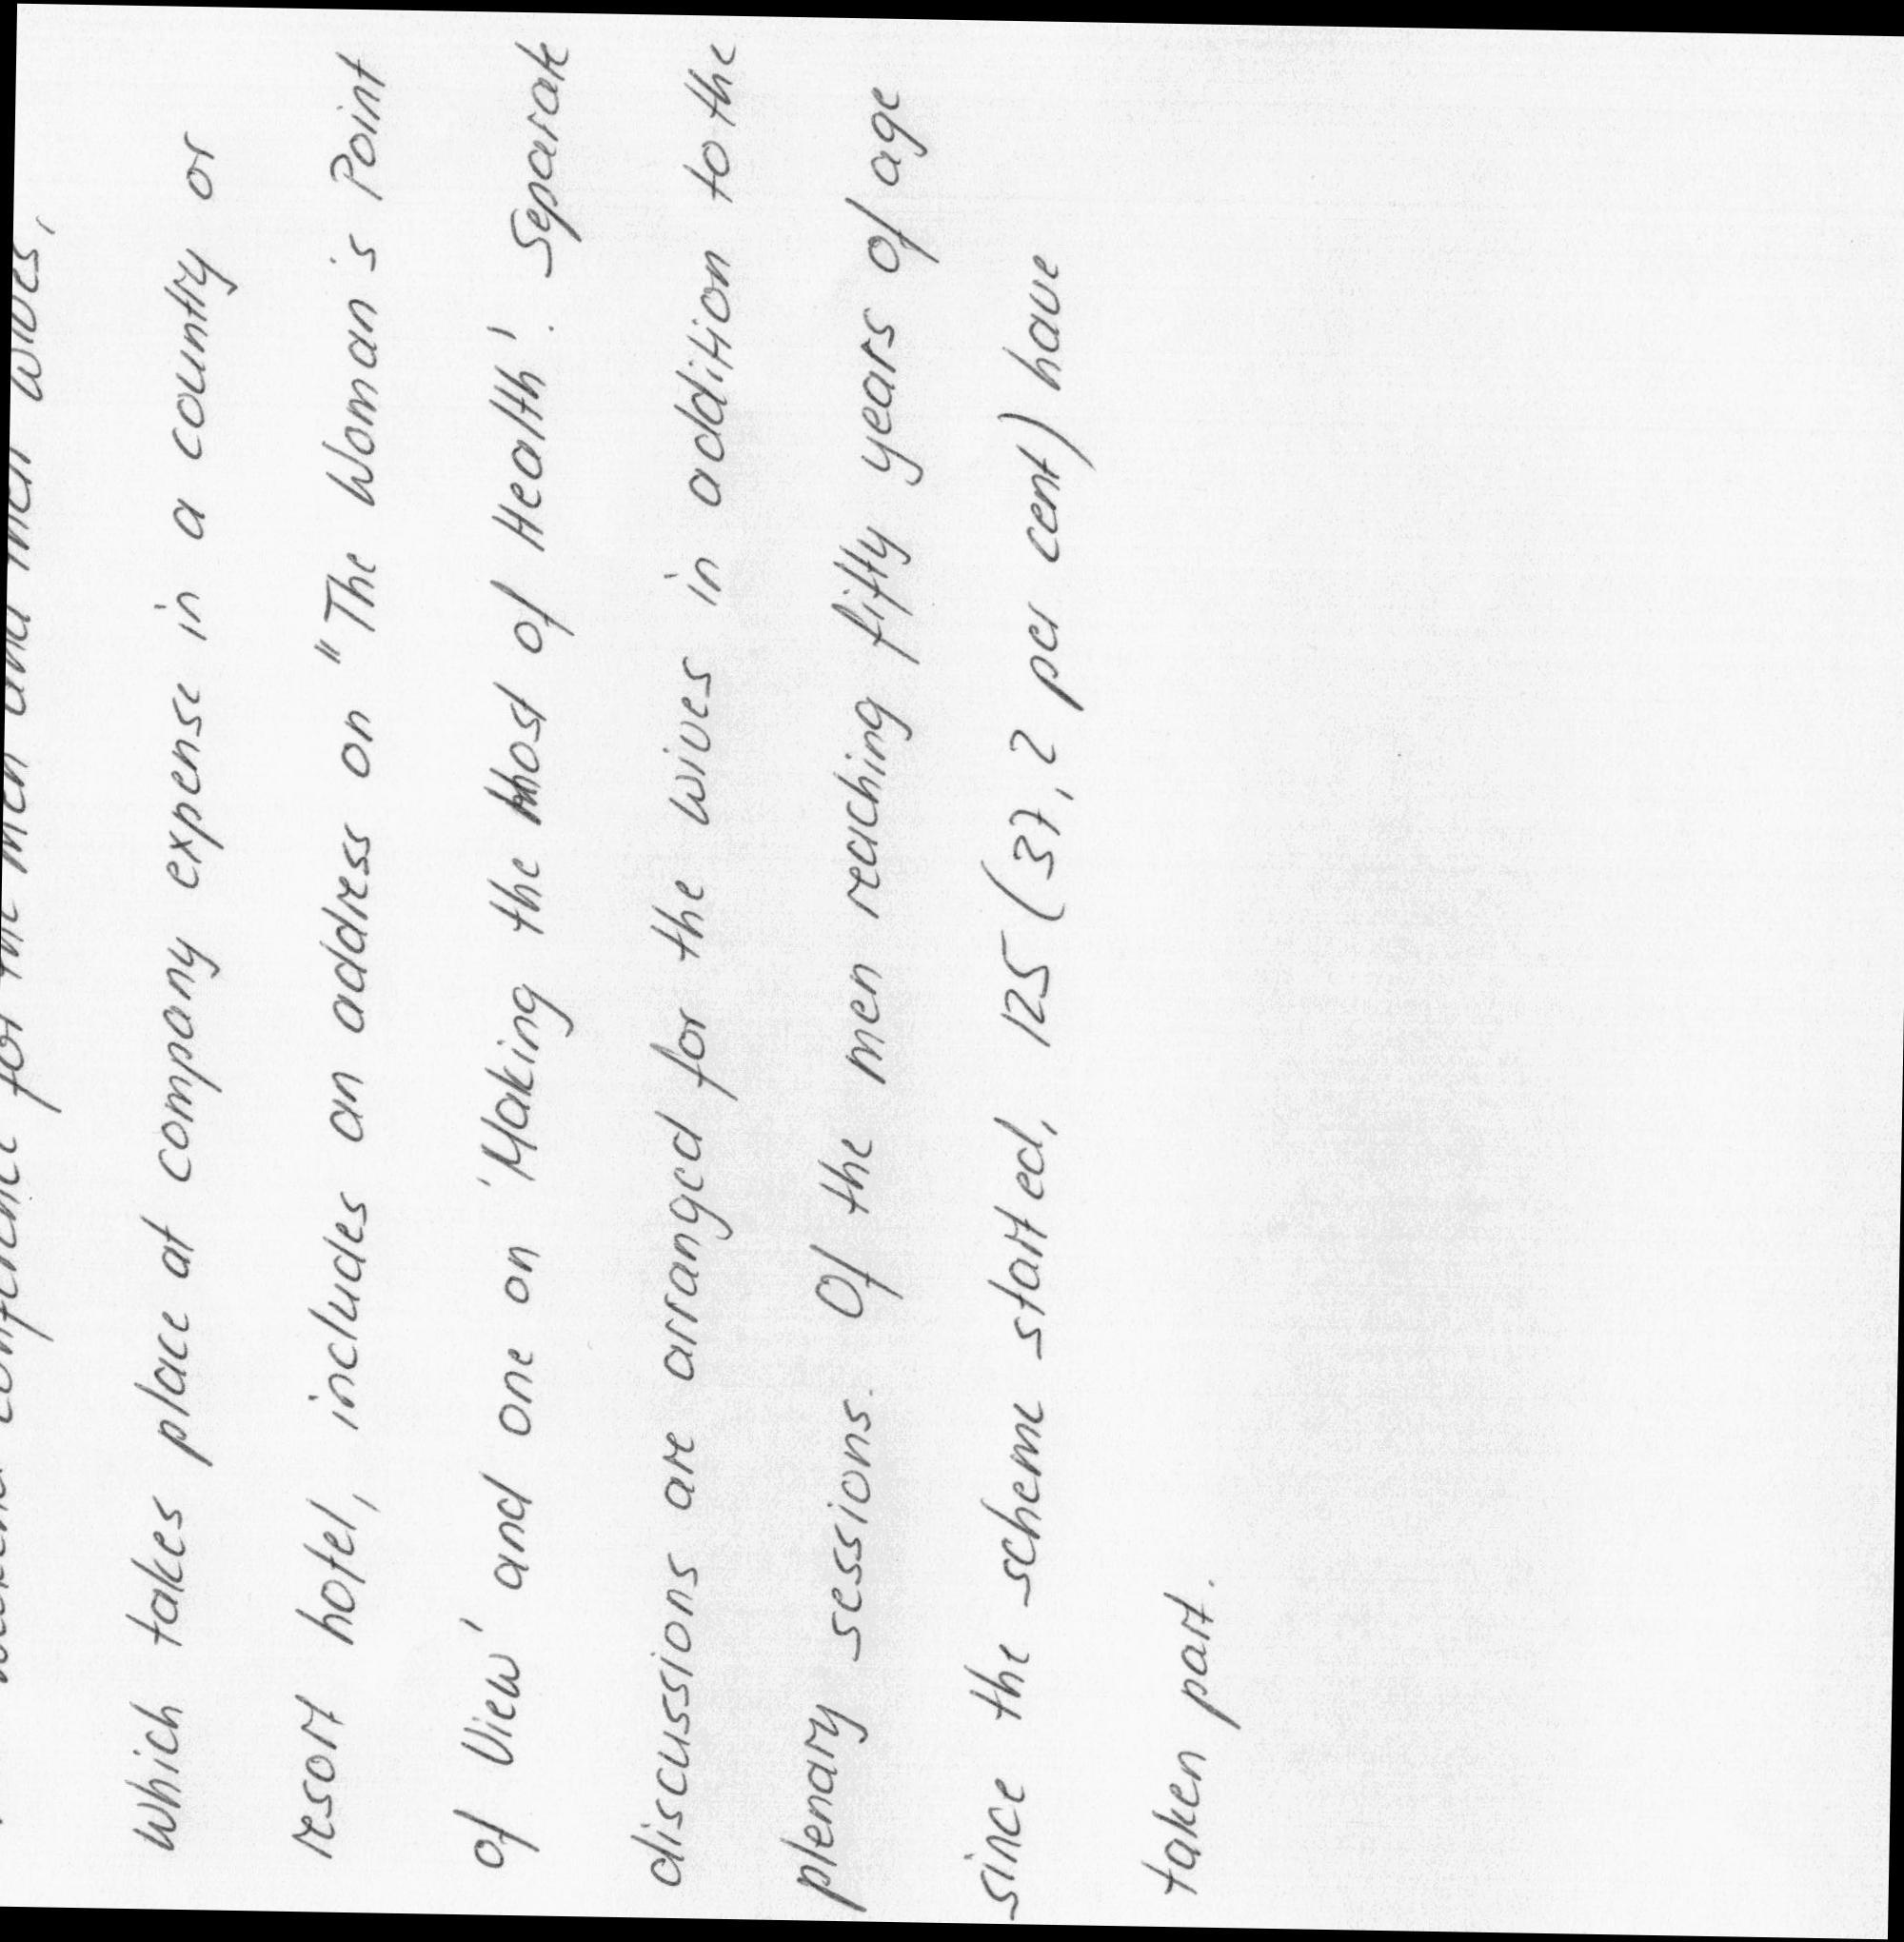 conference for the men and their wives,
which takes place at company expense in a country or
resort hotel, includes an address on "The Woman's Point
of View' and one on 'Making the most of Health'. Separate
discussions are arranged for the wives in addition to the
plenary sessions. Of the men reaching fifty years of age
since the scheme started, 125 (37,2 per cent) have
taken part.